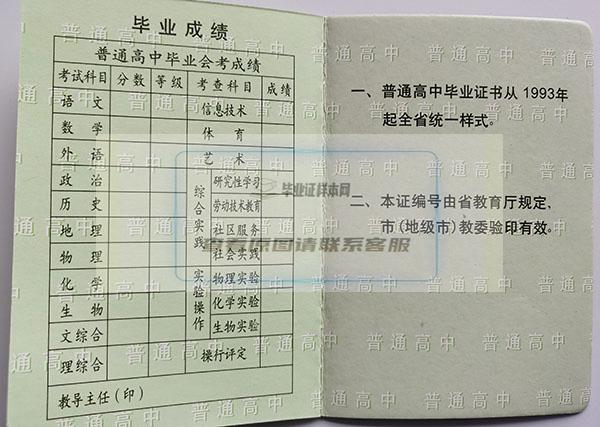 毕业成绩
普通高中毕业会考成绩
考试科目 分数 等级 考查科目 成绩
语文 信息技术
数学 体育
外语 艺术
政治 综合实践 研究性学习
历史 劳动技术教育
地理 社区服务
物理 社会实践
化学 实验操作 物理实验
生物 化学实验
文综合 生物实验
理综合 操行评定
教导主任(印)
一、普通高中毕业证书从1993年
起全省统一样式。
二、本证编号由省教育厅规定,
市(地级市)教委验印有效。
毕业证样本网
查看原图请联系客服
普通高中 普通高中 普通高中
普通高中 普通高中 普通高中